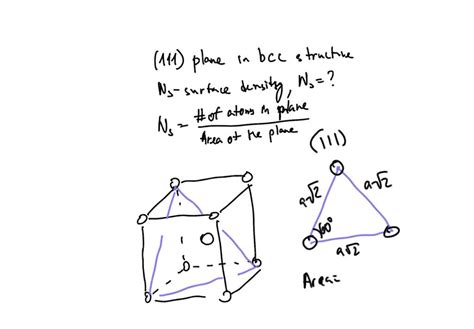 (111) plane in bcc structure
Ns - surface density, Ns = ?
Ns = # of atoms in plane / Area of the plane
(111)
a√2 a√2
60°
a√2
Area=